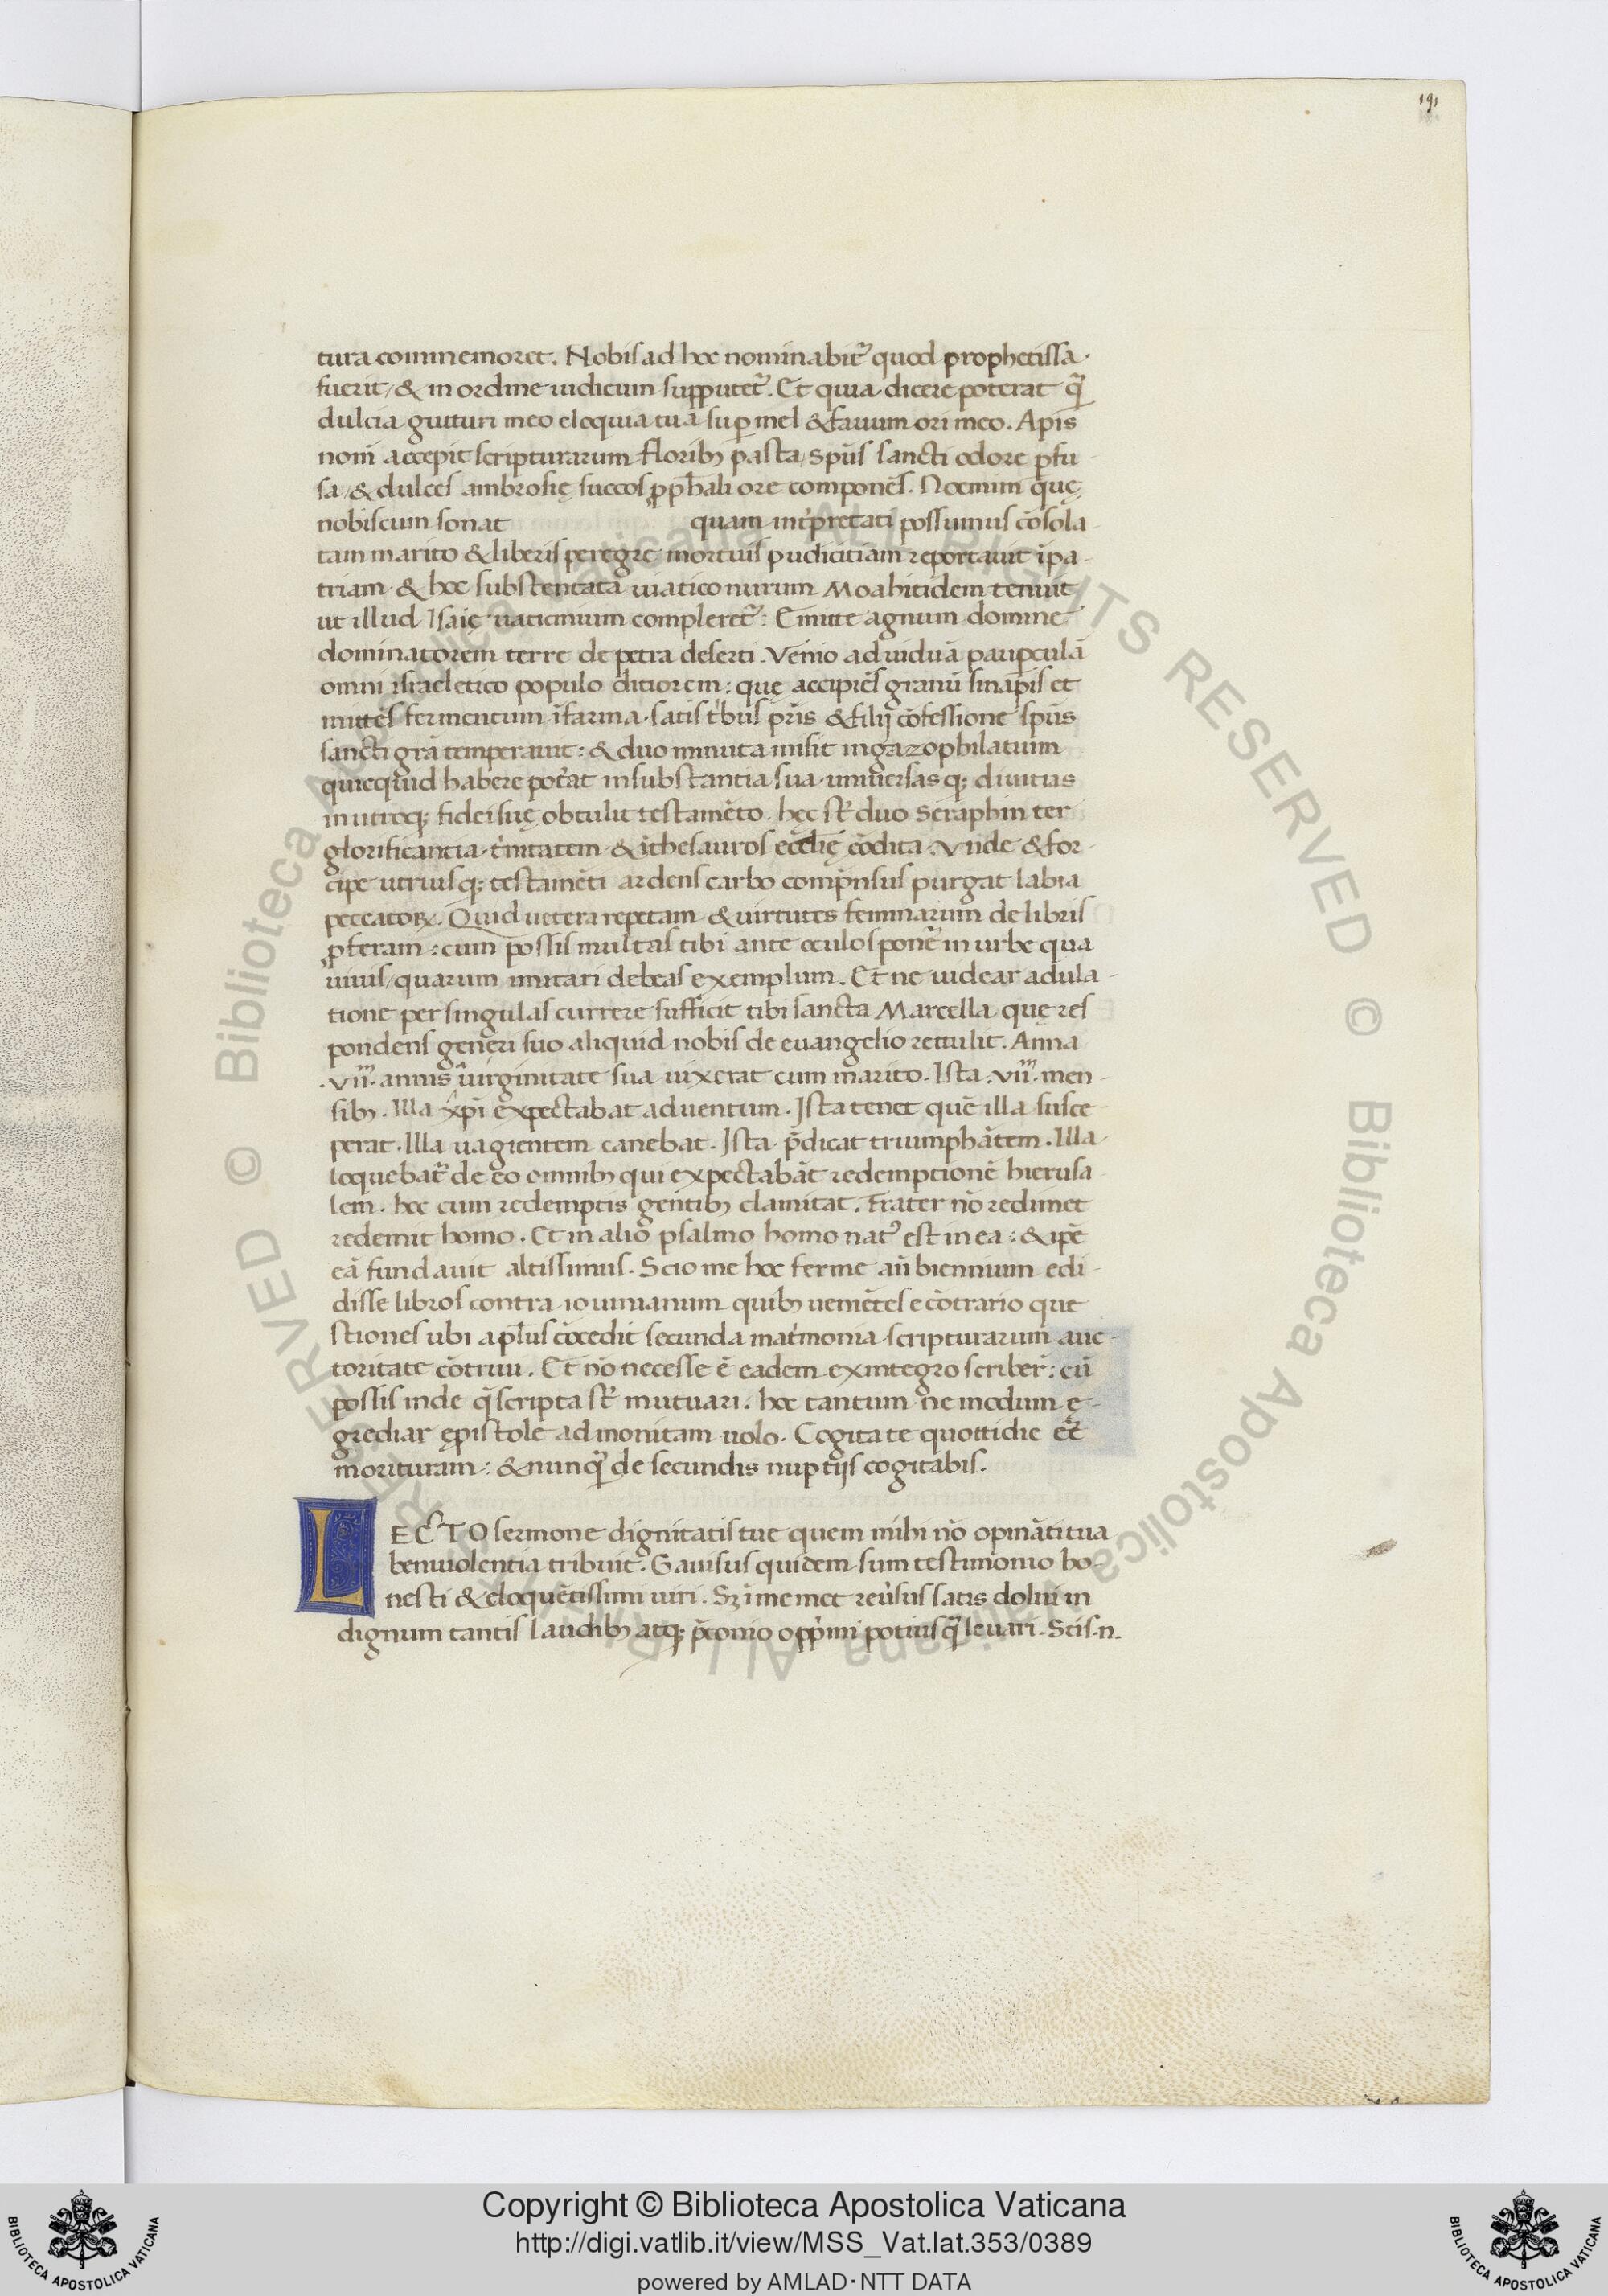 191
tura commemoret. Nobis ad hoc nominabit᷑ quod prophetissa
fuerit, & in ordine iudicum supputet᷑. Et quia dicere poterat q̃
dulcia gutturi meo eloquia tua suꝑ mel & fauum ori meo. Apis
nom̄ accepit scripturarum floribꝫ pasta, sp̄us sancti odore ꝑfu
sa, & dulces ambrosię succos ꝓph̄ali ore componēs. Noemim quę
nobiscum sonat quam int̓pretari possumus cōsola
tam marito & liberis peregre mortuis pudicitiam reportauit ī pa
triam & hoc substentata uiatico nurum Moabitidem tenuit
ut illud Isaię uaticinium compleret᷑: Emitte agnum domine
dominatorem terre de petra deserti. Venio ad uiduā pauꝑculā
omni israeletico populo ditiorem: quę accipiēs granū sinapis et
mittēs fermentum ī farina satis t̓bus p̄ris & filij cōfessionē sp̄us
sancti grā temperauit: & duo minuta misit in gazophilatium
quicquid habere pot̓at in substantia sua uniuersasqꝫ diuitias
in utroqꝫ fidei suę obtulit testamēto. hęc st̄ duo Seraphin ter
glorificantia t̓nitatem & ī thesauros ecclię cōdita. Vnde & for
cipe utriusqꝫ testamēti ardens carbo comp̄nsus purgat labia
peccatoꝝ. Quid uetera repetam & uirtutes feminarum de libris
ꝓferam: cum possis multas tibi ante oculos pone᷑ in urbe qua
uiuis, quarum imitari debeas exemplum. Et ne uidear adula
tione per singulas currere sufficit tibi sancta Marcella quę res
pondens generi suo aliquid nobis de euangelio rettulit. Anna
.vii. annis ī uirginitate sua uixerat cum marito. Ista .vii. men
sibꝫ. Illa xp̄i expectabat aduentum. Ista tenet quē illa susce
perat. Illa uagientem canebat. Ista p̄dicat triumphātem. Illa
loquebat᷑ de eo omnibꝫ qui expectabāt redemptionē hierusa
lem. hec cum redemptis gentibꝫ clamitat. Frater nō redimet
redemit homo. Et in alio psalmo homo nat᷒ est in ea: & ip̄e
eā fundauit altissimus. Scio me hoc ferme an̄ biennium edi
disse libros contra iouinianum quibꝫ uenīetes e cōtrario que
stiones ubi ap̄lus cōcedit secunda mat̓monia scripturarum auc
toritate cōtriui. Et nō necesse ē eadem ex integro scriber̄: cū
possis inde q̄ scripta st̄ mutuari. hoc tantum ne modum e
grediar ępistole admonitam uolo. Cogita te quottidie ee᷑
morituram: & nunq̃ de secundis nuptijs cogitabis.
LECTO sermone dignitatis tue quem mihi nō opināti tua
beniuolentia tribuit. Gauisus quidem sum testimonio ho
nesti & eloquētissimi uiri. Sꝫ ī me met reu̓sus satis dolui in
dignum tantis laudibꝫ atqꝫ p̄conio opp̓mi potius q̃ leuari. Scis .n.
© Biblioteca Apostolica Vaticana ALL RIGHTS RESERVED © Biblioteca Apostolica Vaticana ALL RIGHTS RESERVED
Copyright © Biblioteca Apostolica Vaticana
http://digi.vatlib.it/view/MSS_Vat.lat.353/0389
powered by AMLAD·NTT DATA
BIBLIOTECA APOSTOLICA VATICANA
BIBLIOTECA APOSTOLICA VATICANA